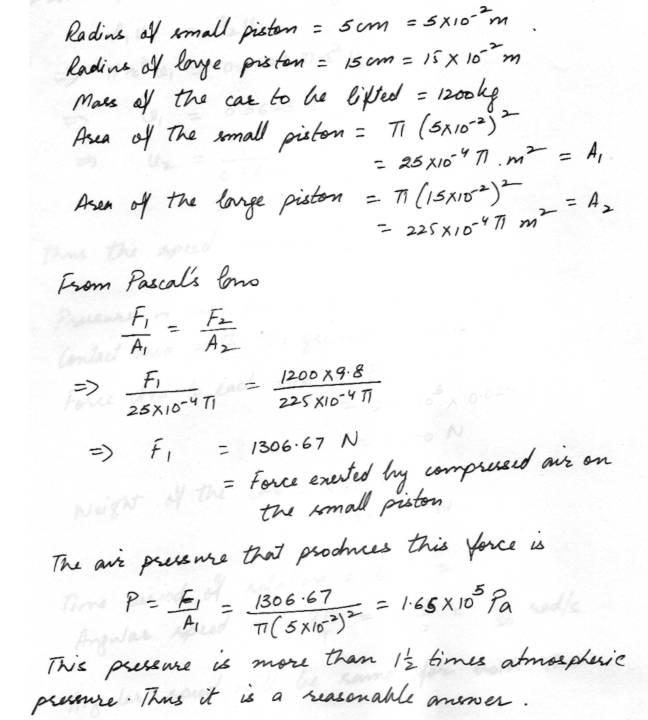 Radius of small piston = 5 cm = 5×10⁻² m.
Radius of large piston = 15 cm = 15 × 10⁻² m
Mass of the car to be lifted = 1200 kg
Area of The small piston = π (5×10⁻²)²
= 25 ×10⁻⁴ π . m² = A₁
Area of the large piston = π (15×10⁻²)²
= 225 ×10⁻⁴ π m² = A₂
From Pascal's law
F₁/A₁ = F₂/A₂
=> F₁/(25×10⁻⁴ π) = (1200 × 9.8)/(225 ×10⁻⁴ π)
=> F₁ = 1306.67 N
= Force exerted by compressed air on
the small piston
The air pressure that produces this force is
P = F₁/A₁ = 1306.67/(π(5×10⁻²)²) = 1.65 × 10⁵ Pa
This pressure is more than 1½ times atmospheric
pressure. Thus it is a reasonable answer.